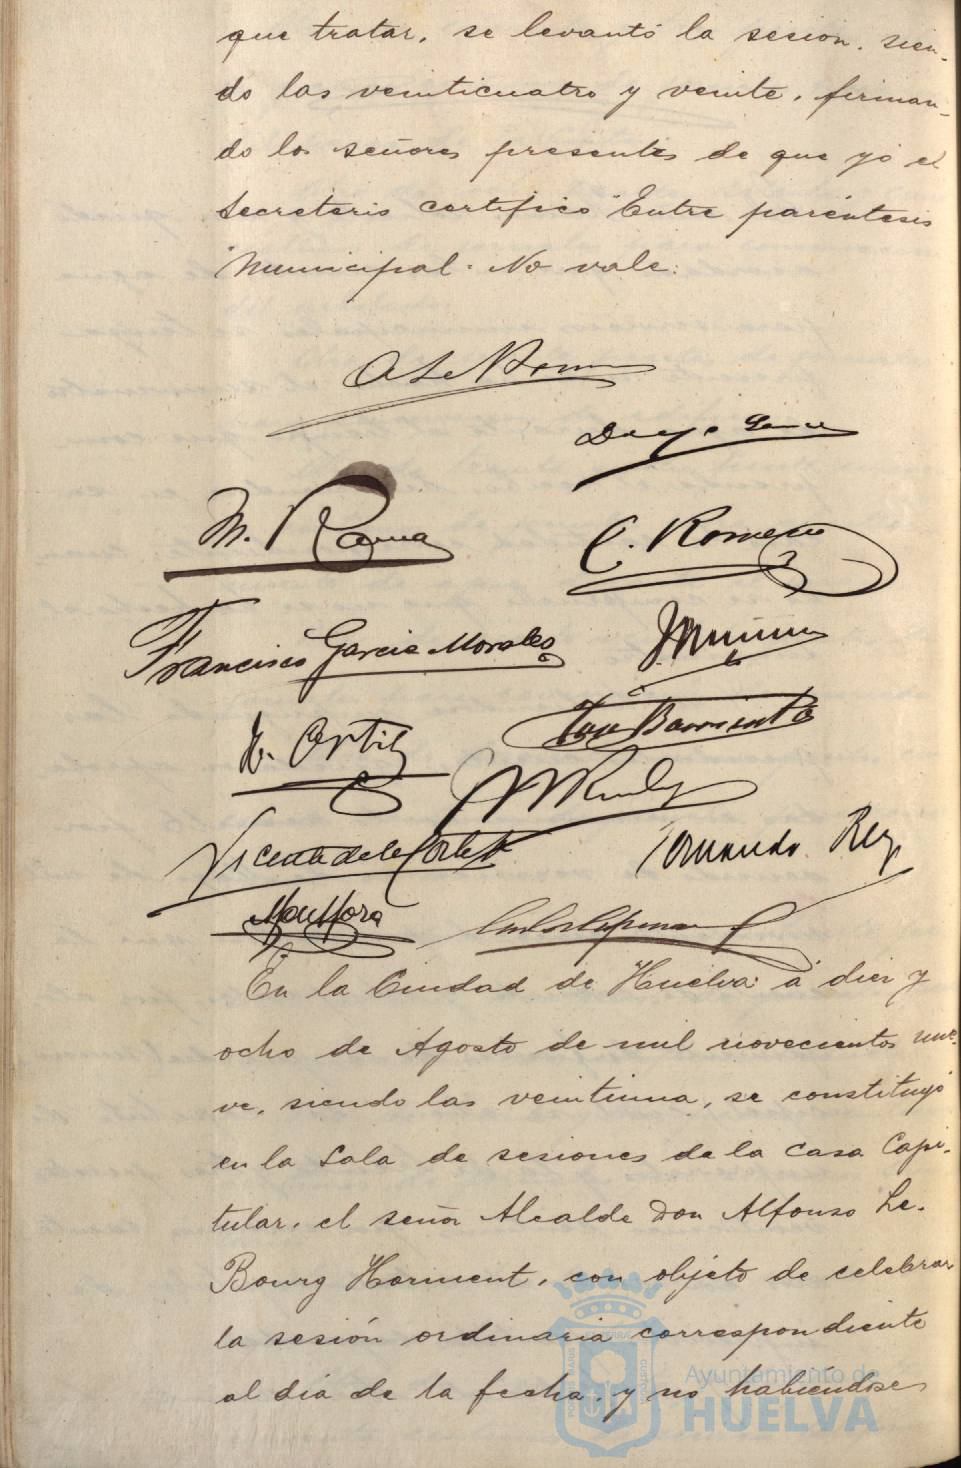 que tratar, se levantó la sesión, sien-
do las veinticuatro y veinte, firman-
do los señores presentes de que yó el
Secretario certifico "Entre paréntesis
"Municipal". No vale:
Diego
M. C. Romero
Francisco Garcia Morales
H. Ortiz José Barrientos
Vicente de la Corte Fernando Rey
Mora
En la Ciudad de Huelva á diez y
ocho de Agosto de mil novecientos nue-
ve, siendo las veintiuna, se constituyó
en la Sala de sesiones de la Casa Capi-
tular, el señor Alcalde Don Alfonso Le-
Bourg Horment, con objeto de celebrar
la sesión ordinaria correspondiente
al dia de la fecha, y no habiéndose
Ayuntamiento de
HUELVA